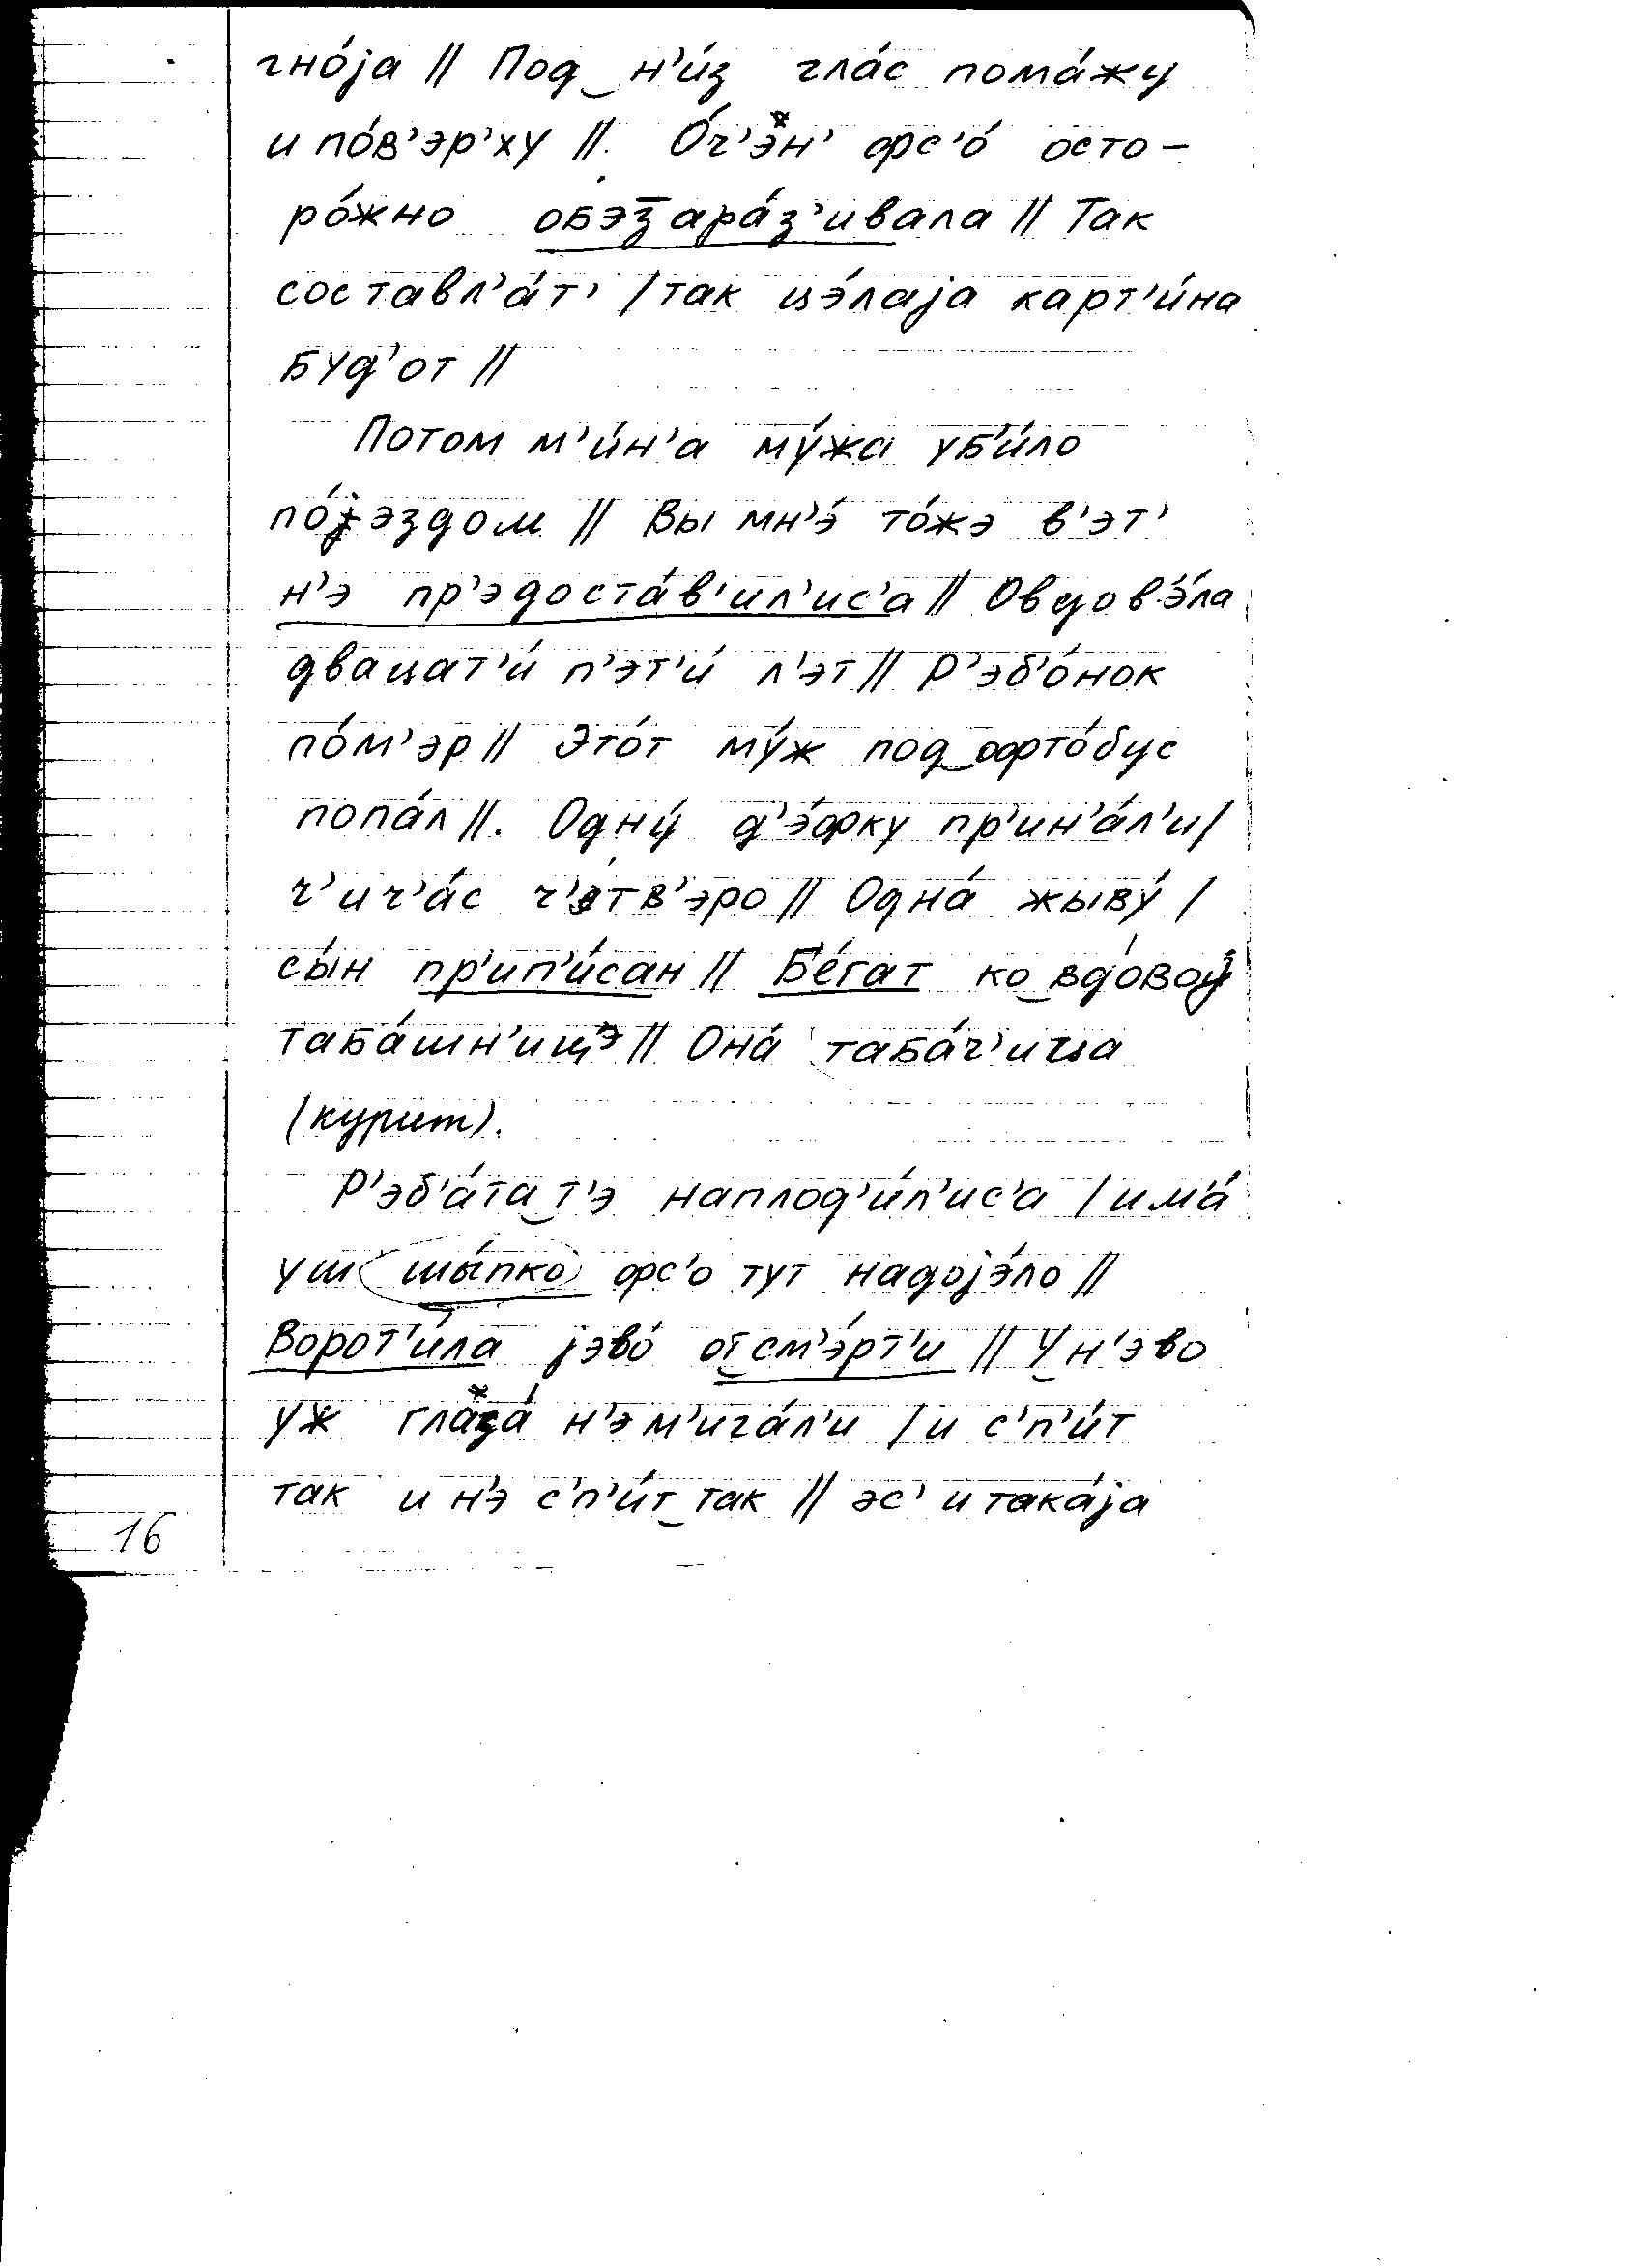 гно́jа // Под‿н'и́з гла́с пома́жу
и по́в'эр'ху //. О́ч'э̽н' фс'о́ осто-
ро́жно обэз̅ара́з'ивала // Так
составл'а́т' / так цэ́лаjа карт'и́на
буд'от //
Потом м'и́н'а му́жа уб'и́ло
по́jэздом // Вы мн'э́ то́жэ в'эт'
н'э пр'эдоста́в'ил'ис'а // Овдов'э́ла
двацат'и́ п'эт'и́ л'эт // Р'эб'о́нок
по́м'эр // Это́т му́ж под‿афто́бус
попа́л //. Одну́ д'э́фку пр'ин'а́л'и /
ч'ич'а́с ч'э́тв'эро // Одна́ жыву́ /
сы́н пр'ип'и́сан // Бе́гат ко‿вдо́вой
таба́шн'ицэ // Она́ таба́ч'ица
(курит).
Р'эб'а́та‿т'э наплод'и́л'ис'а / има́
уш шы́пко фс'о тут надоjэ́ло //
Ворот'и́ла jэво́ от‿см'э́рт'и // У‿н'эво
уж гла̽за́ н'э м'ига́л'и / и с'п'и́т
так и н'э с'п'и́т‿так // эс' и така́jа
16